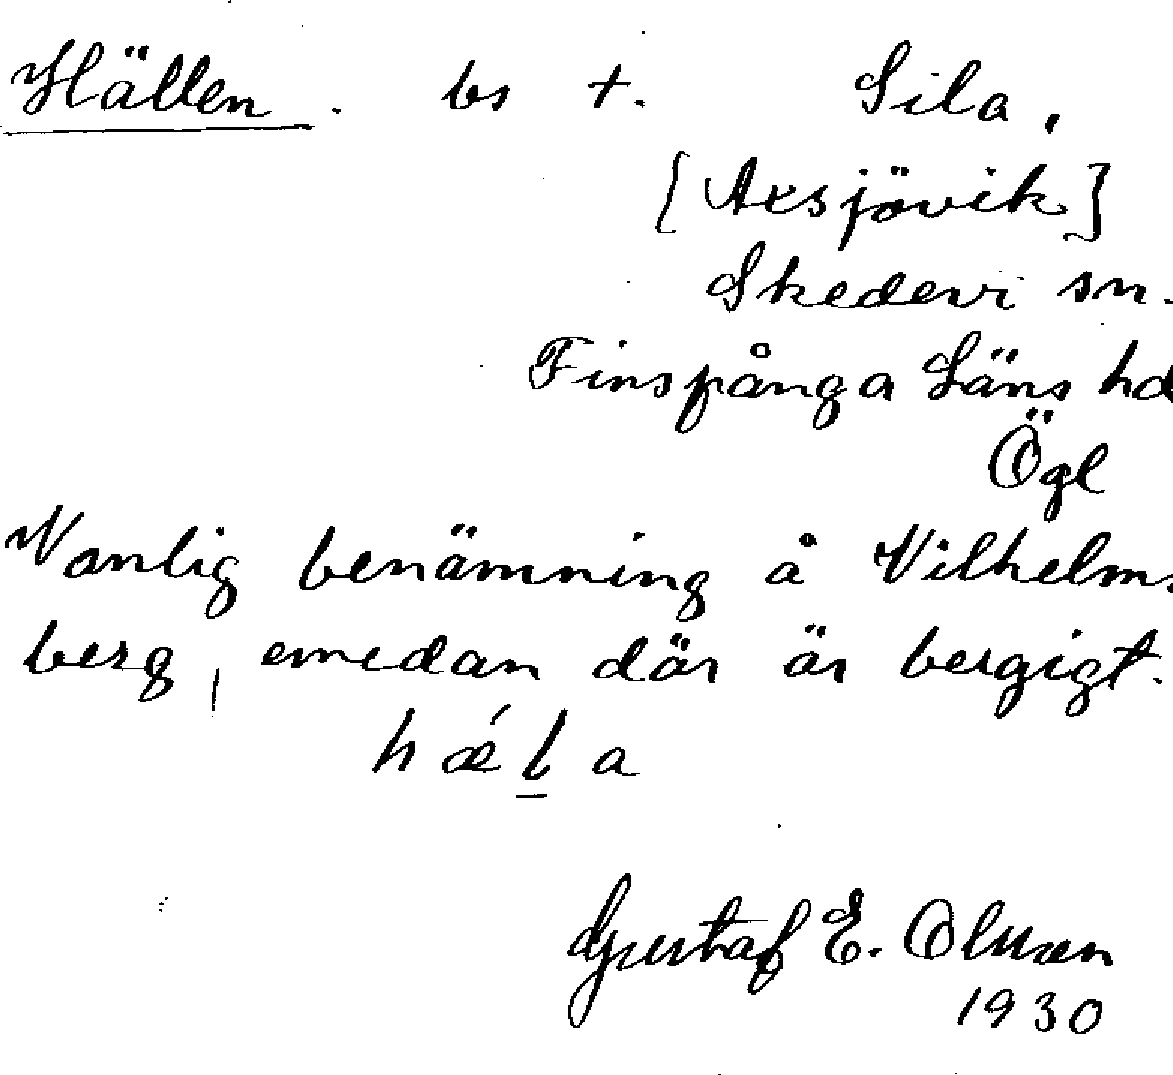 Hällen. bs t. Sila,
[Axsjövik]
Skedevi sn.
Finspånga Läns hd
Ögl
Vanlig benämning å Vilhelms
berg, emedan där är bergigt.
h ǽ l̲ a
Gustaf E. Olsson
1930